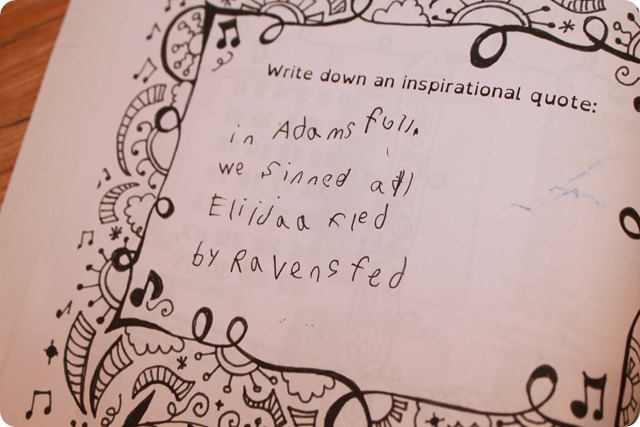 Write down an inspirational quote:
in Adams full.
we sinned all
Elijaa fled
by Ravens fed